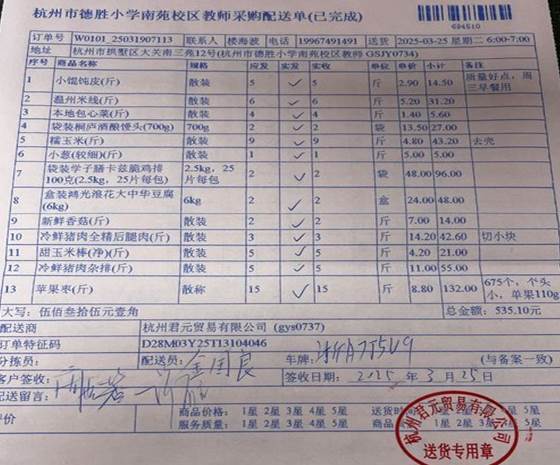 杭州市德胜小学南苑校区教师采购配送单(已完成)
订单号 W0101_25031907113 联系人 楼海波 电话 19967491491 送货 2025-03-25 星期二 6:00-7:00
地址 杭州市拱墅区大关南三苑12号(杭州市德胜小学南苑校区教师 GSJY0734)
序号 商品名称 规格 应发 实发 实收 单位 单价 小计 备注
1 小馄饨皮(斤) 散装 5 ✓ 5 斤 2.90 14.50 质量好点,周三早餐用
2 温州米线(斤) 散装 6 ✓ 6 斤 5.20 31.20
3 本地包心菜(斤) 散装 4 ✓ 4 斤 1.40 5.60
4 袋装桐庐酒酿馒头(700g) 700g 2 ✓ 2 袋 13.50 27.00
5 糯玉米(斤) 散装 9 ✓ 9 斤 4.80 43.20 去壳
6 小葱(较细)(斤) 散装 1 ✓ 1 斤 5.00 5.00
7 袋装学子膳卡兹脆鸡排100克(2.5kg,25片每包) 2.5kg,25片每包 2 ✓ 2 袋 48.00 96.00
8 盒装鸿光浪花大中华豆腐(6kg) 6kg 2 ✓ 2 盒 24.00 48.00
9 新鲜香菇(斤) 散装 2 ✓ 2 斤 7.00 14.00
10 冷鲜猪肉全精后腿肉(斤) 散装 3 ✓ 3 斤 14.20 42.60 切小块
11 甜玉米棒(净)(斤) 散装 5 ✓ 5 斤 4.20 21.00
12 冷鲜猪肉杂排(斤) 散装 5 ✓ 5 斤 11.00 55.00
13 苹果枣(斤) 散称 15 ✓ 15 斤 8.80 132.00 675个,个头小,单果110g
大写:伍佰叁拾伍元壹角 总金额:535.10元
配送商 杭州君元贸易有限公司 (gys0737)
订单特征码 D28M03Y25T13104046
分拣员: 配送员: 金国良 车牌: 浙A7T5U9 (与备案一致)
客户签收: 签收日期: 2025年3月25日
配送留言:
评价 商品价格: 1星 2星 3星 4星 5星 送货时 1星 2星 3星 4星 5星
服务质量: 1星 2星 3星 4星 5星 商品
杭州君元贸易有限公司
送货专用章